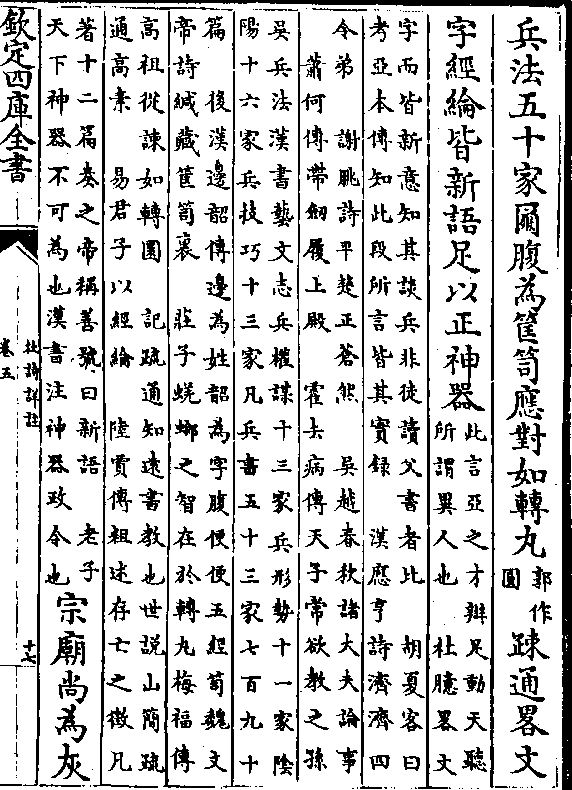 兵法五十家爾腹為筐笥應對如轉丸
郭作
圓
疎通畧文
字經綸皆新語足以正神器
此言亞之才辯足動天聽
所謂異人也 杜臆畧文
字而皆新意知其談兵非徒讀父書者比 胡夏客曰
考亞本傳知此段所言皆其實録 漢應亨詩濟濟四
令弟 謝朓詩平楚正蒼然 吳越春秋諸大夫論事
蕭何傳帶劒履上殿 霍去病傳天子常欲教之孫
吳兵法漢書藝文志兵權謀十三家兵形勢十一家陰
陽十六家兵技巧十三家凡兵書五十三家七百九十
篇 後漢邊韶傳邊為姓韶為字腹便便五經笥魏文
帝詩緘藏筐笥裏 莊子蜣螂之智在於轉丸梅福傳
高祖從諫如轉圜 記疏通知遠書教也世説山簡疏
通高素 易君子以經綸 陸賈傳祖述存亡之徵凡
著十二篇奏之帝稱善號曰新語 老子
天下神器不可為也漢書注神器政令也
宗廟尚為灰
欽定四庫全書
杜詩詳註
卷五
十七